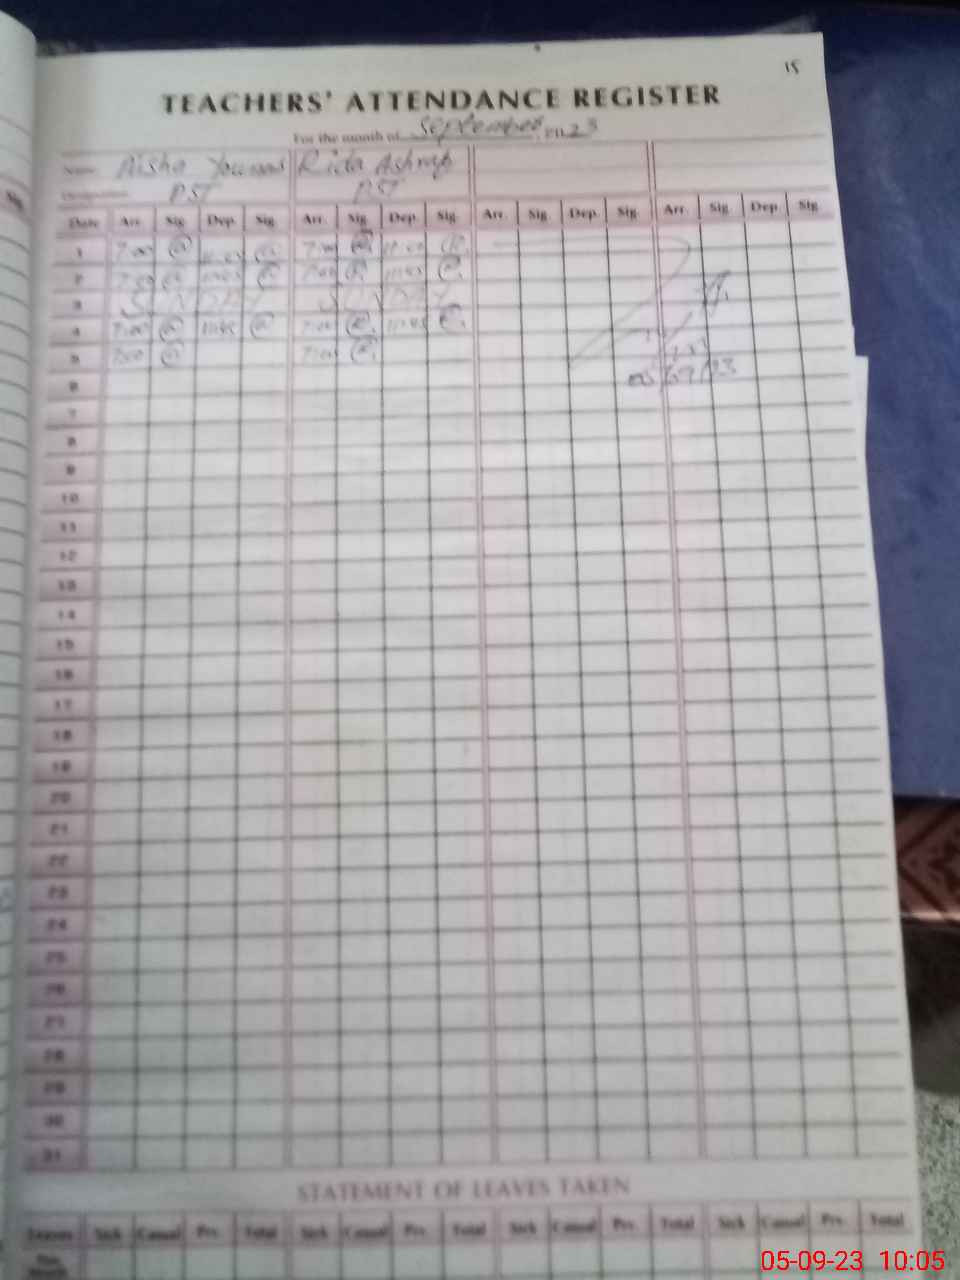 15
TEACHERS' ATTENDANCE REGISTER
For the month of September, 2023
Name Aisha Younas Rida Ashraf
Designation PST PST
Date Arr. Sig. Dep. Sig. Arr. Sig. Dep. Sig. Arr. Sig. Dep. Sig. Arr. Sig. Dep. Sig.
1 7:00 7:00
2 7:00 11:45 7:00 11:45
3 SUNDAY SUNDAY
4 7:00 11:45 7:00 11:45
5 7:00 7:00
05/09/23
6
7
8
9
10
11
12
13
14
15
16
17
18
19
20
21
22
23
24
25
26
27
28
29
30
31
STATEMENT OF LEAVES TAKEN
Leaves Sick Casual Prv. Total Sick Casual Prv. Total Sick Casual Prv. Total Sick Casual Prv. Total
05-09-23 10:05